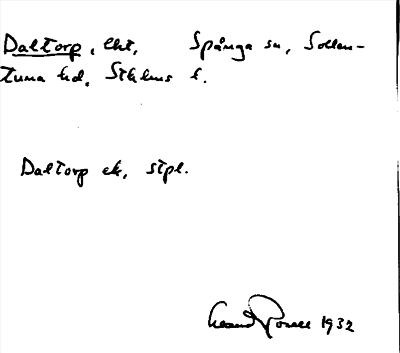 Daltorp, lht, Spånga sn, Sollen-
tuna hd, Sthlms l.
Daltorp ek, stpl.
1932